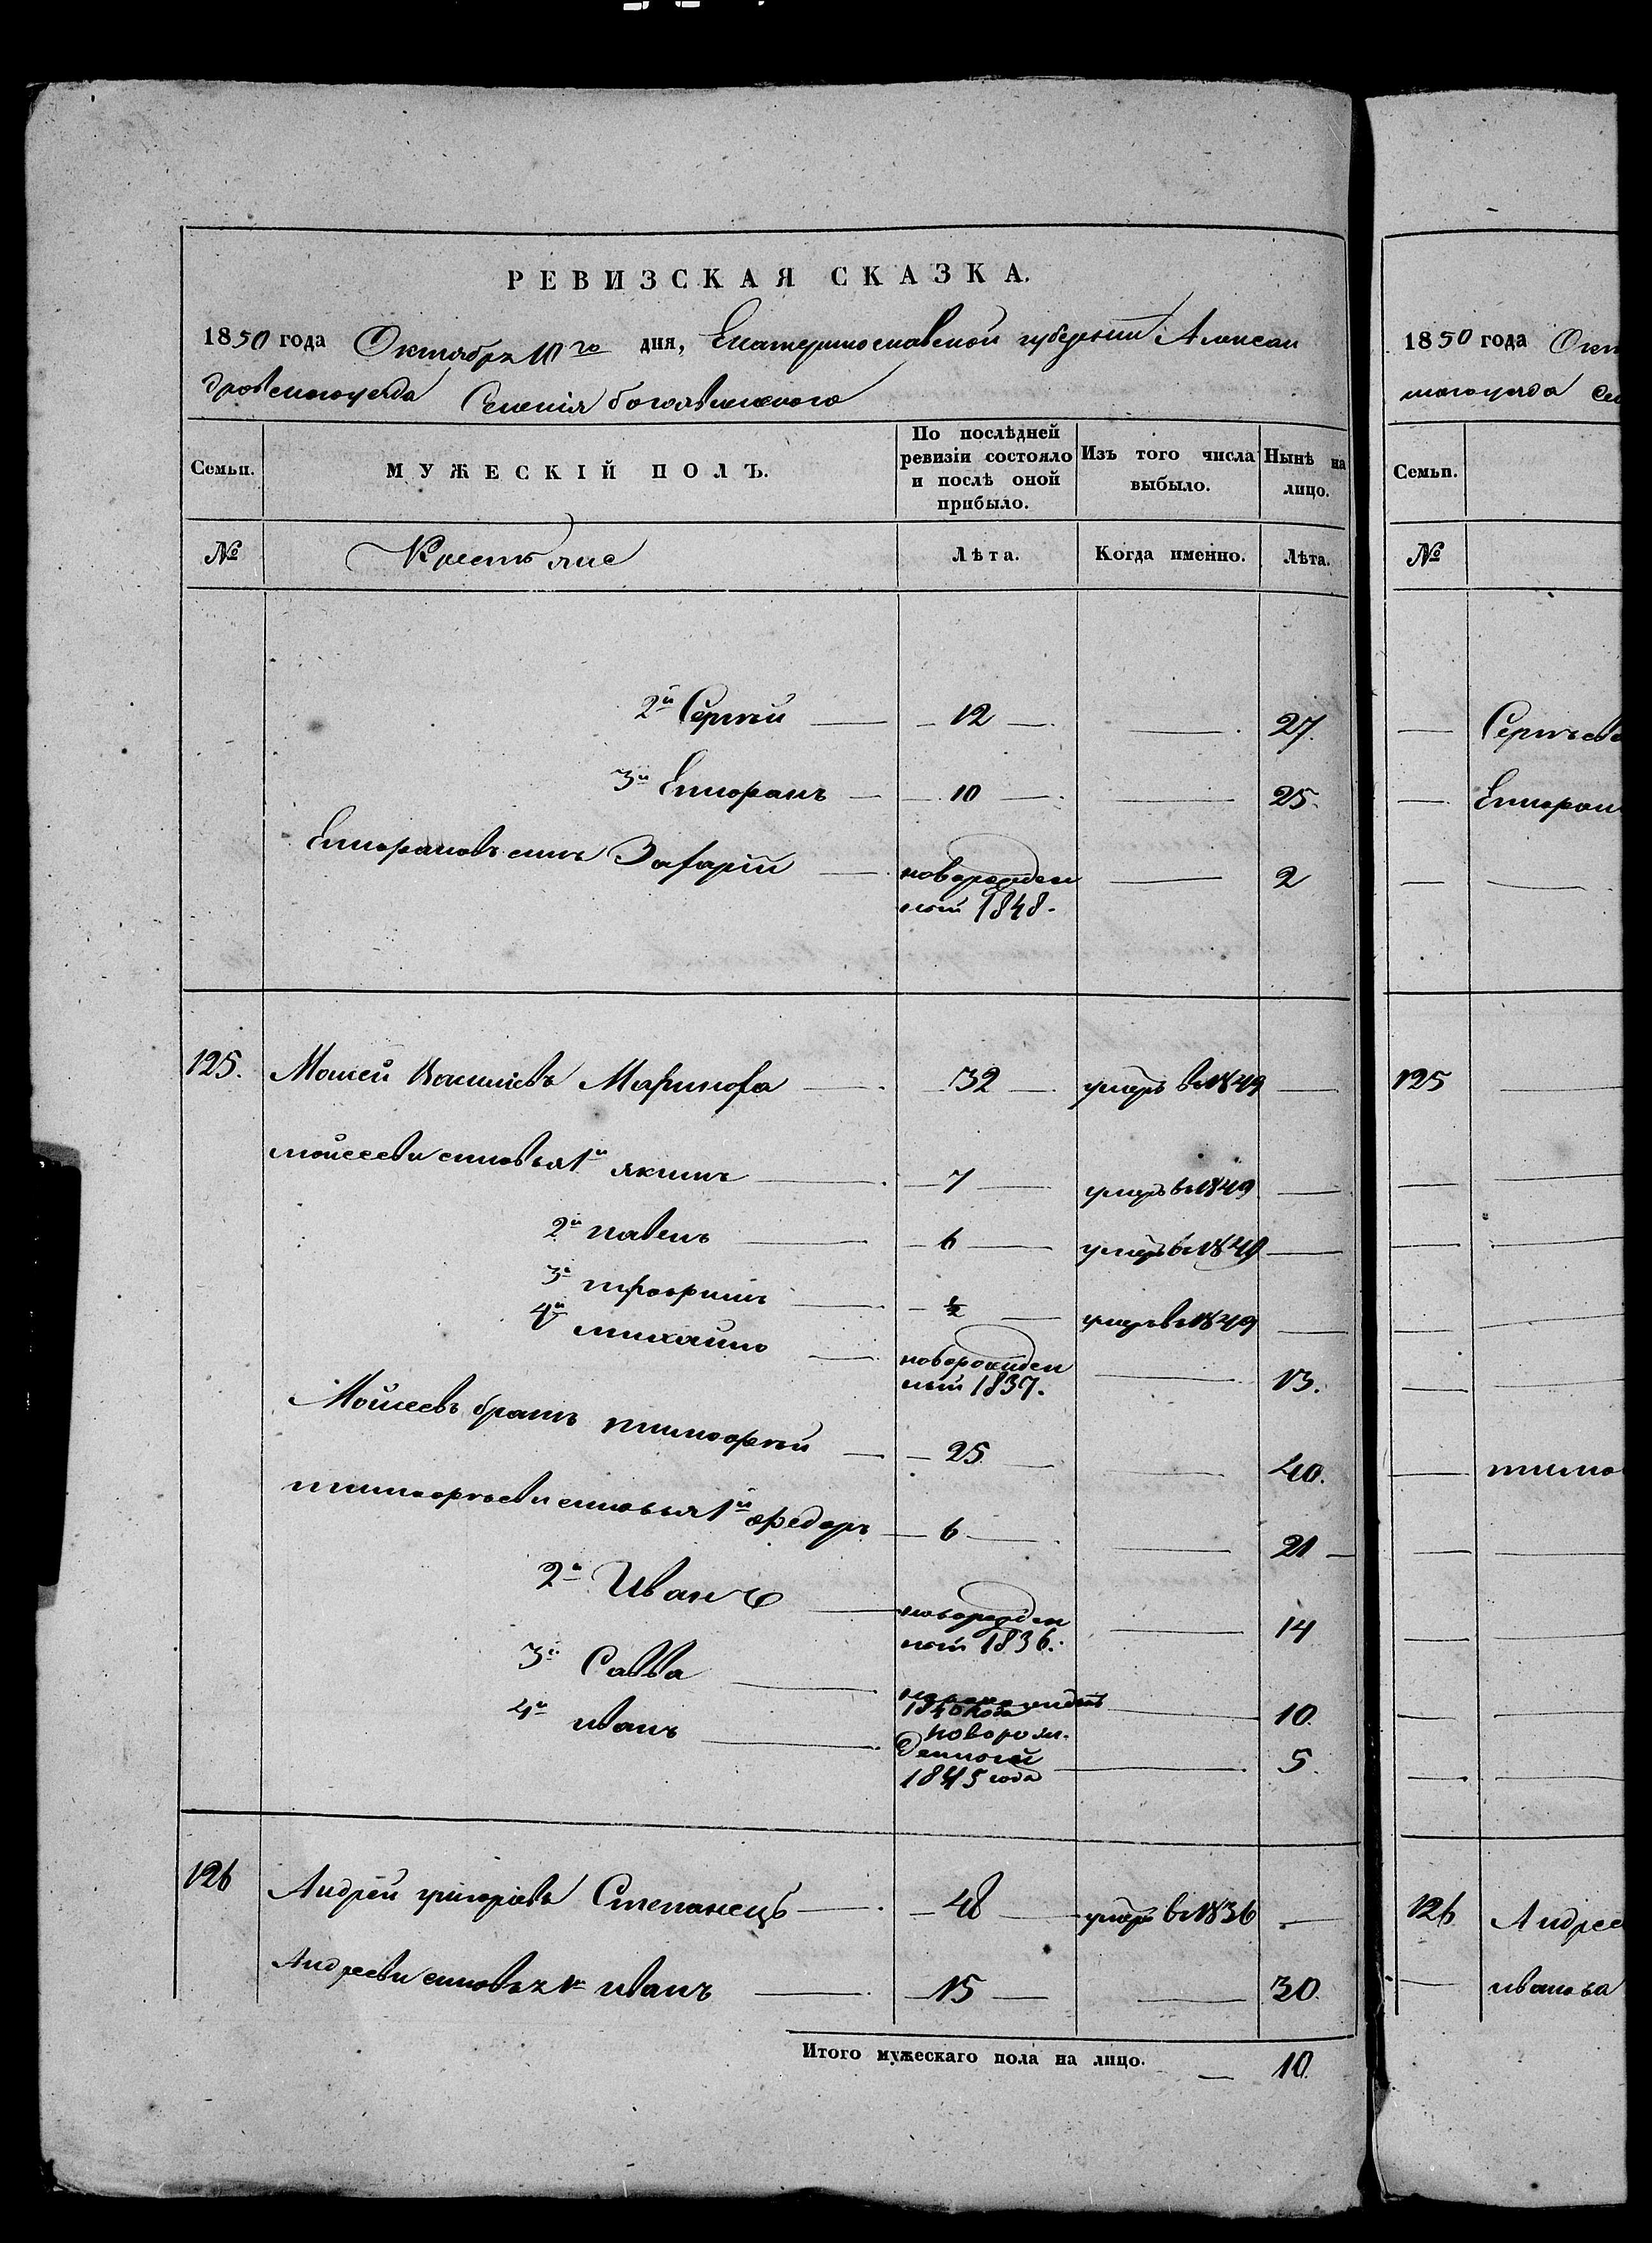 РЕВИЗСКАЯ СКАЗКА.
1850 года Октября 10го дня, Екатеринославской губернии Алексан
дровскагоуезда Селенія богоявленскаго
Семьи. МУЖЕСКІЙ ПОЛЪ. По послѣдней ревизіи состояло и послѣ оной прибыло. Изъ того числа выбыло. Нынѣ на лицо.
№ Крестьяне Лѣта. Когда именно. Лѣта.
2й Сергѣй 12 27.
3й Епифанъ 10 25.
Епифановъ сынъ Захарій новорожден
ный 1848. 2
125. Моисей Васильевъ 32 умеръ въ 1849
Мойсееви сыновья 1й якимъ 7 умеръ въ 1849
2й павелъ 6 умеръ въ 1849
3й трофимъ ½ умеръ въ 1849
4й михайло новорожден
ный 1837. 13.
Мойсеевъ братъ тимофѣй 25 40.
тимофѣеви сыновья 1й Федоръ 6 21
2й Иванъ новорожден
ный 1836. 14
3й Савва
1840 года 10.
4й иванъ новорож-
денной
1845 года 5.
126 Андрей григоріевъ Степанецъ 48 умеръ въ 1836
Андрееви сыновья 1й иванъ 15 30.
Итого мужескаго пола на лицо. 10.
1850 года Окт
скагоуезда Сел
Семьи.
№
Сергѣева
Епифан
125
тимо
126. Андрее
иванова